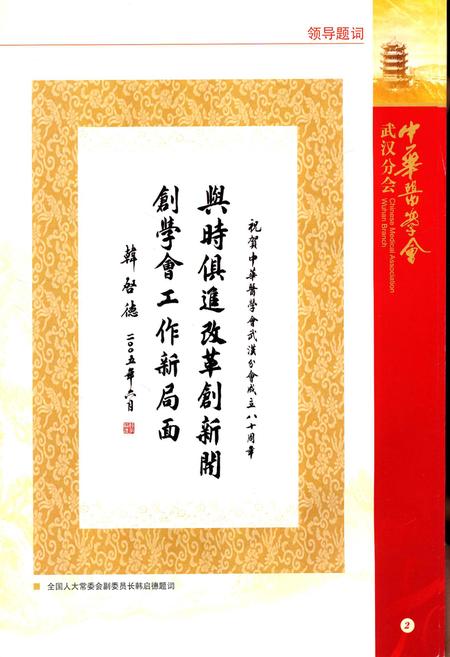 领导题词
祝賀中華醫學會武漢分會成立八十周年
與時俱進改革創新開
創學會工作新局面
韓啓德
二〇〇五年六月
全国人大常委会副委员长韩启德题词
中華醫學會
武汉分会
Chinese Medical Association
Wuhan Branch
2